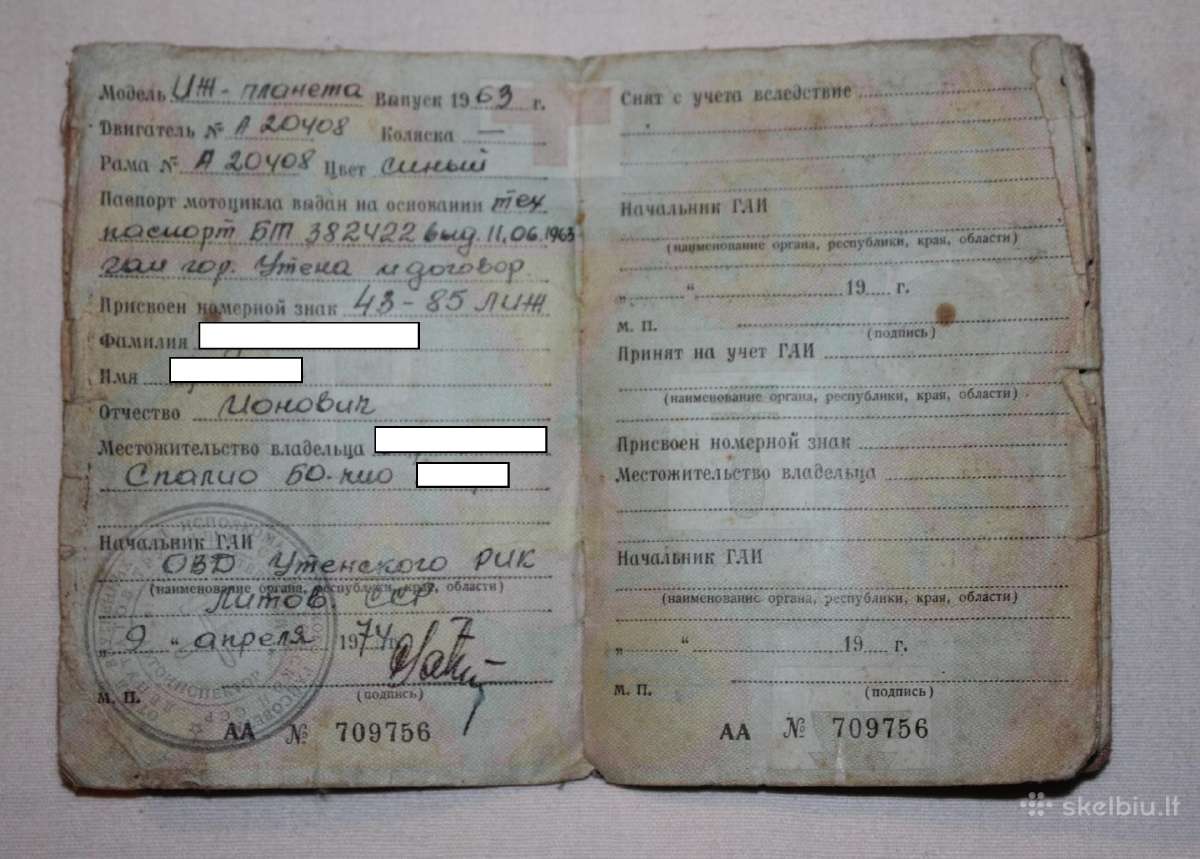 Модель ИЖ-планета Выпуск 1963 г.
Двигатель № А 20408 Коляска —
Рама № А 20408 Цвет синый
Паспорт мотоцикла выдан на основании тех.
паспорт БТ 382422 выд. 11.06.1963
гаи гор. Утена и договор
Присвоен номерной знак 43-85 ЛИЖ
Фамилия
Имя
Отчество Ионович
Местожительство владельца
Спалио 50-чио
Начальник ГАИ
ОВД Утенского РИК
(наименование органа, республики, края, области)
Литов. ССР
„ 9 “ апреля 1974 г.
М. П. (подпись)
АА № 709756
Снят с учета вследствие
Начальник ГАИ
(наименование органа, республики, края, области)
„ “ 19 г.
М. П.
(подпись)
Принят на учет ГАИ
(наименование органа, республики, края, области)
Присвоен номерной знак
Местожительство владельца
Начальник ГАИ
(наименование органа, республики, края, области)
„ “ 19 г.
М. П. (подпись)
АА № 709756
skelbiu.lt